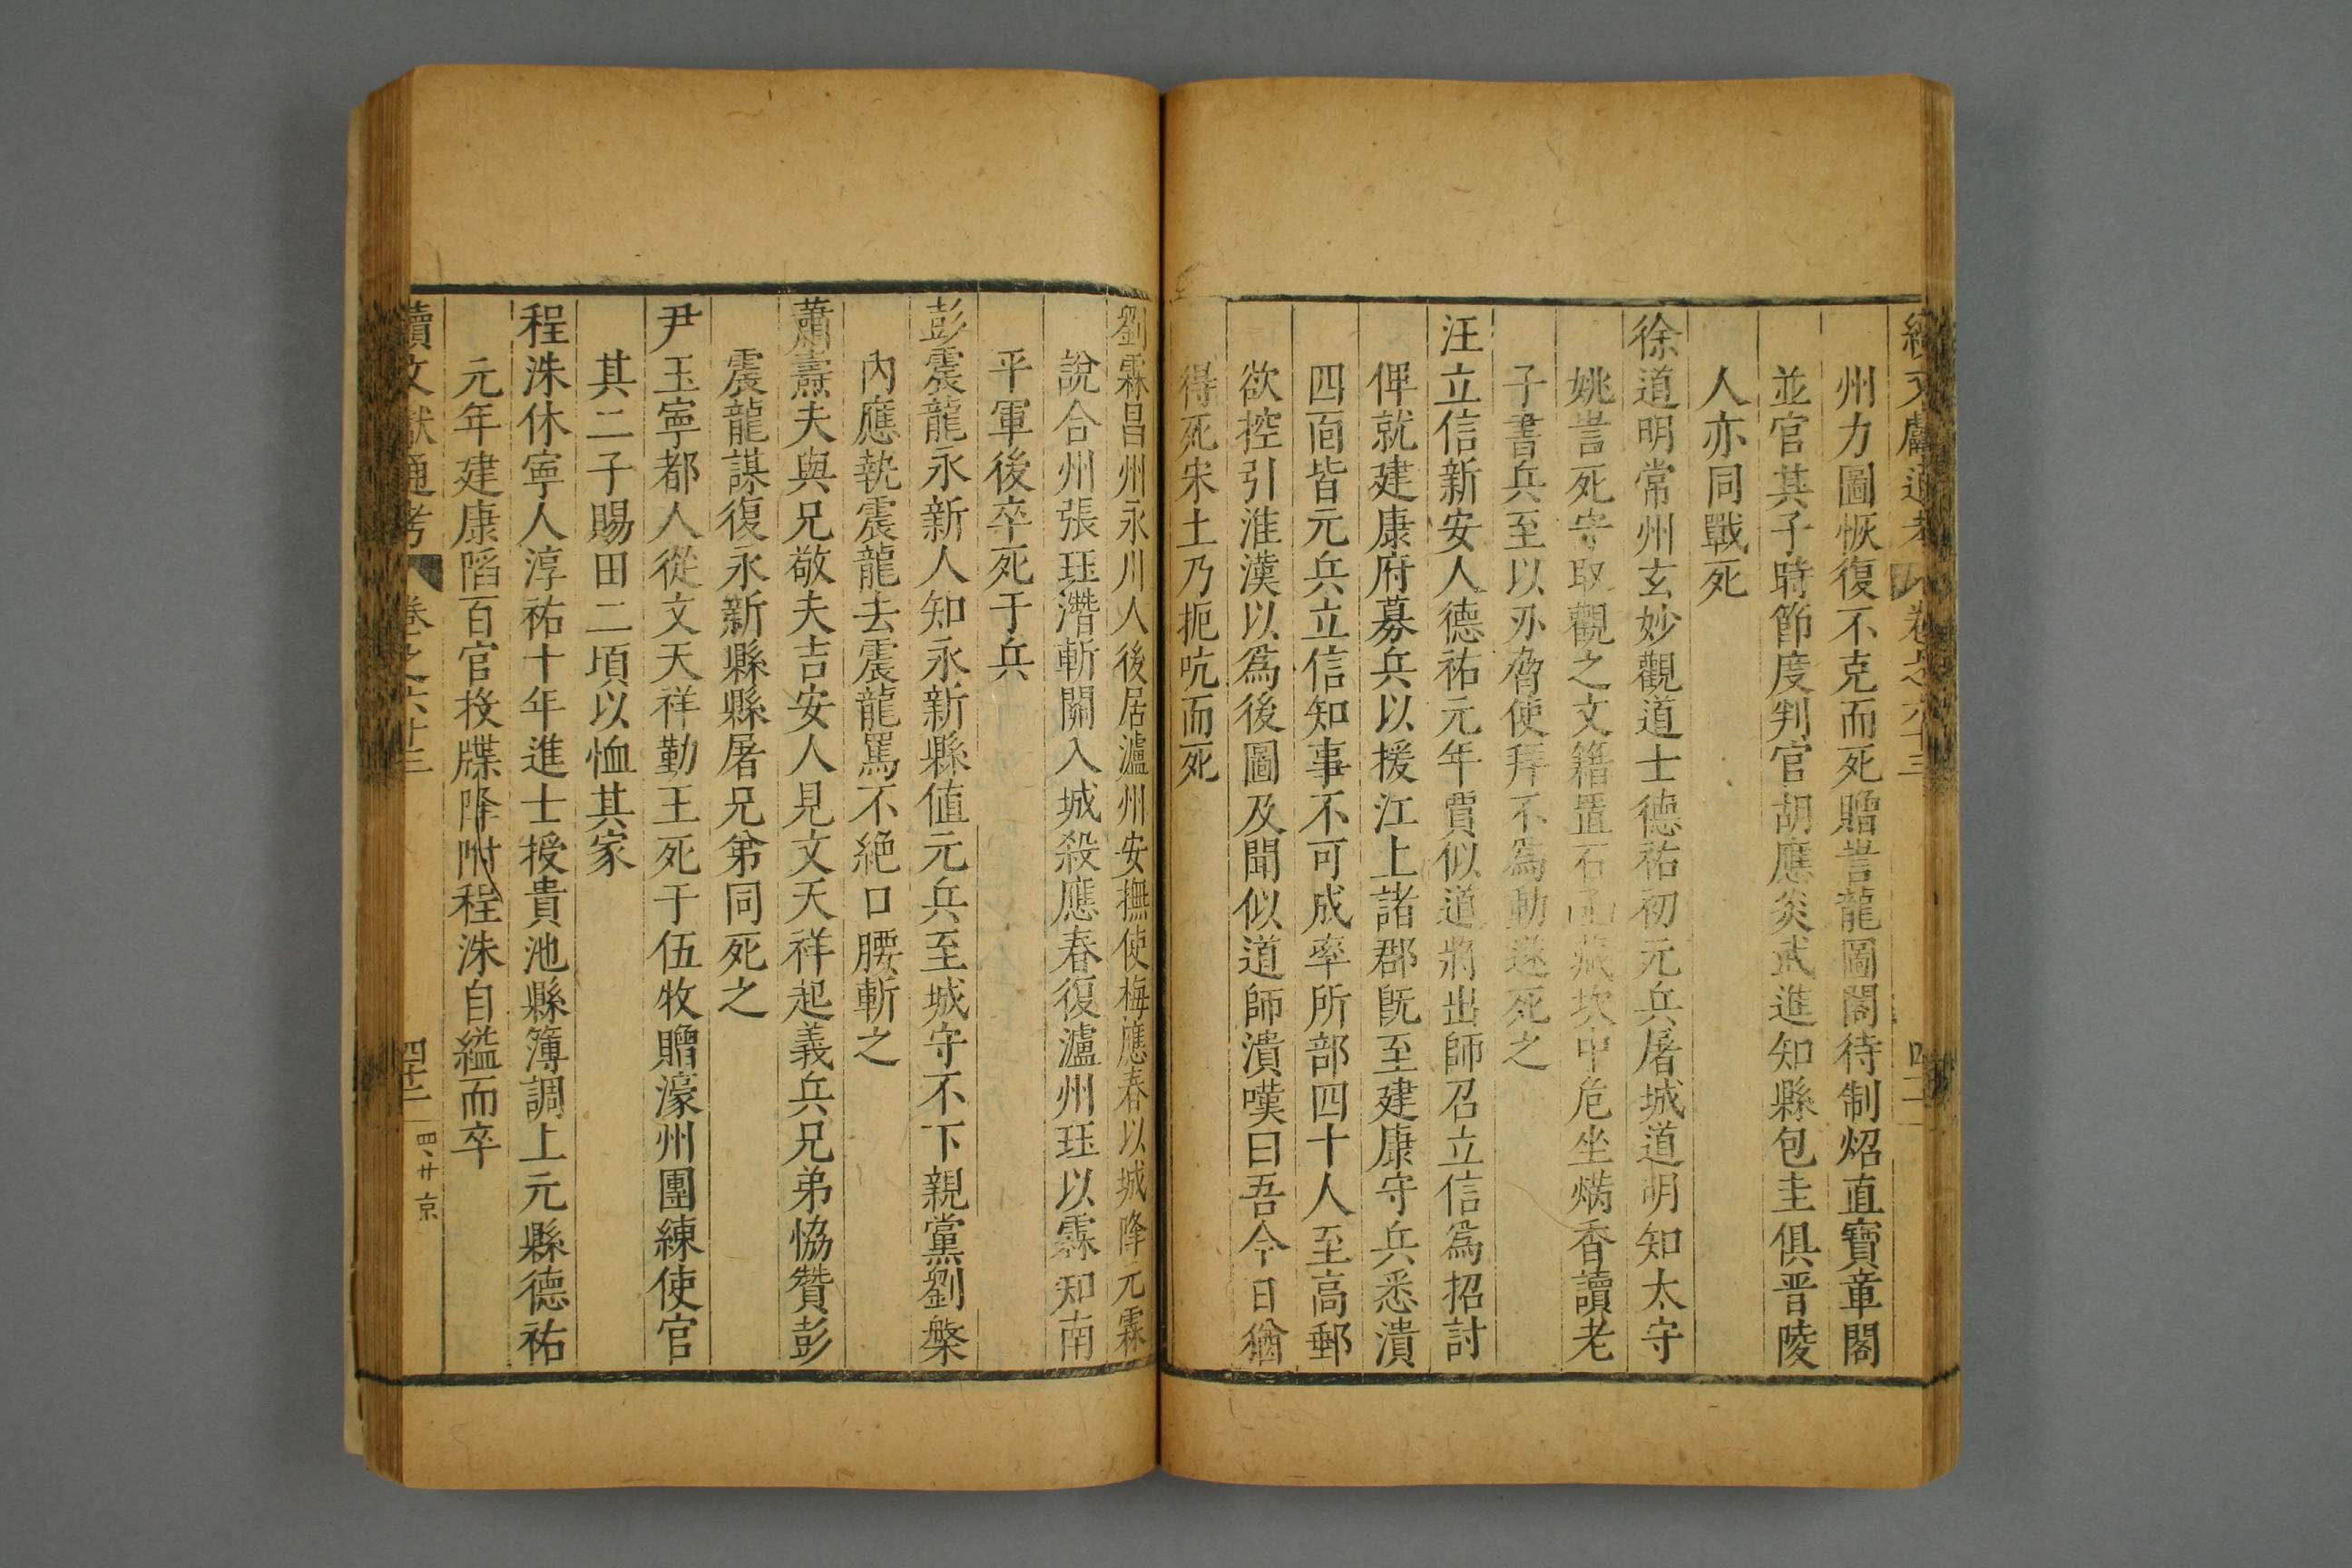 續文獻通考 卷之六十三 四十二
州力圖恢復不克而死贈訔龍圖閣待制炤直寶章閣
並官其子時節度判官胡應炎武進知縣包圭俱晋陵
人亦同戰死
徐道明常州玄妙觀道士德祐初元兵屠城道明知太守
姚訔死守取觀之文籍置石函藏坎中危坐焫香讀老
子書兵至以刃脅使拜不爲動遂死之
汪立信新安人德祐元年賈似道將出師召立信爲招討
俾就建康府募兵以援江上諸郡旣至建康守兵悉潰
四面皆元兵立信知事不可成率所部四十人至高郵
欲控引淮漢以爲後圖及聞似道師潰嘆曰吾今日猶
得死宋土乃扼吭而死
劉霖昌州永川人後居瀘州安撫使梅應春以城降元霖
說合州張珏潛斬關入城殺應春復瀘州珏以霖知南
平軍後卒死于兵
彭震龍永新人知永新縣值元兵至城守不下親黨劉槃
內應執震龍去震龍罵不絕口腰斬之
蕭燾夫與兄敬夫吉安人見文天祥起義兵兄弟恊贊彭
震龍謀復永新縣縣屠兄弟同死之
尹玉寧都人從文天祥勤王死于伍牧贈濠州團練使官
其二子賜田二頃以恤其家
程洙休寧人淳祐十年進士授貴池縣簿調上元縣德祐
元年建康陷百官投牒降附程洙自縊而卒
續文獻通考 卷之六十三 四十三 四、廿京